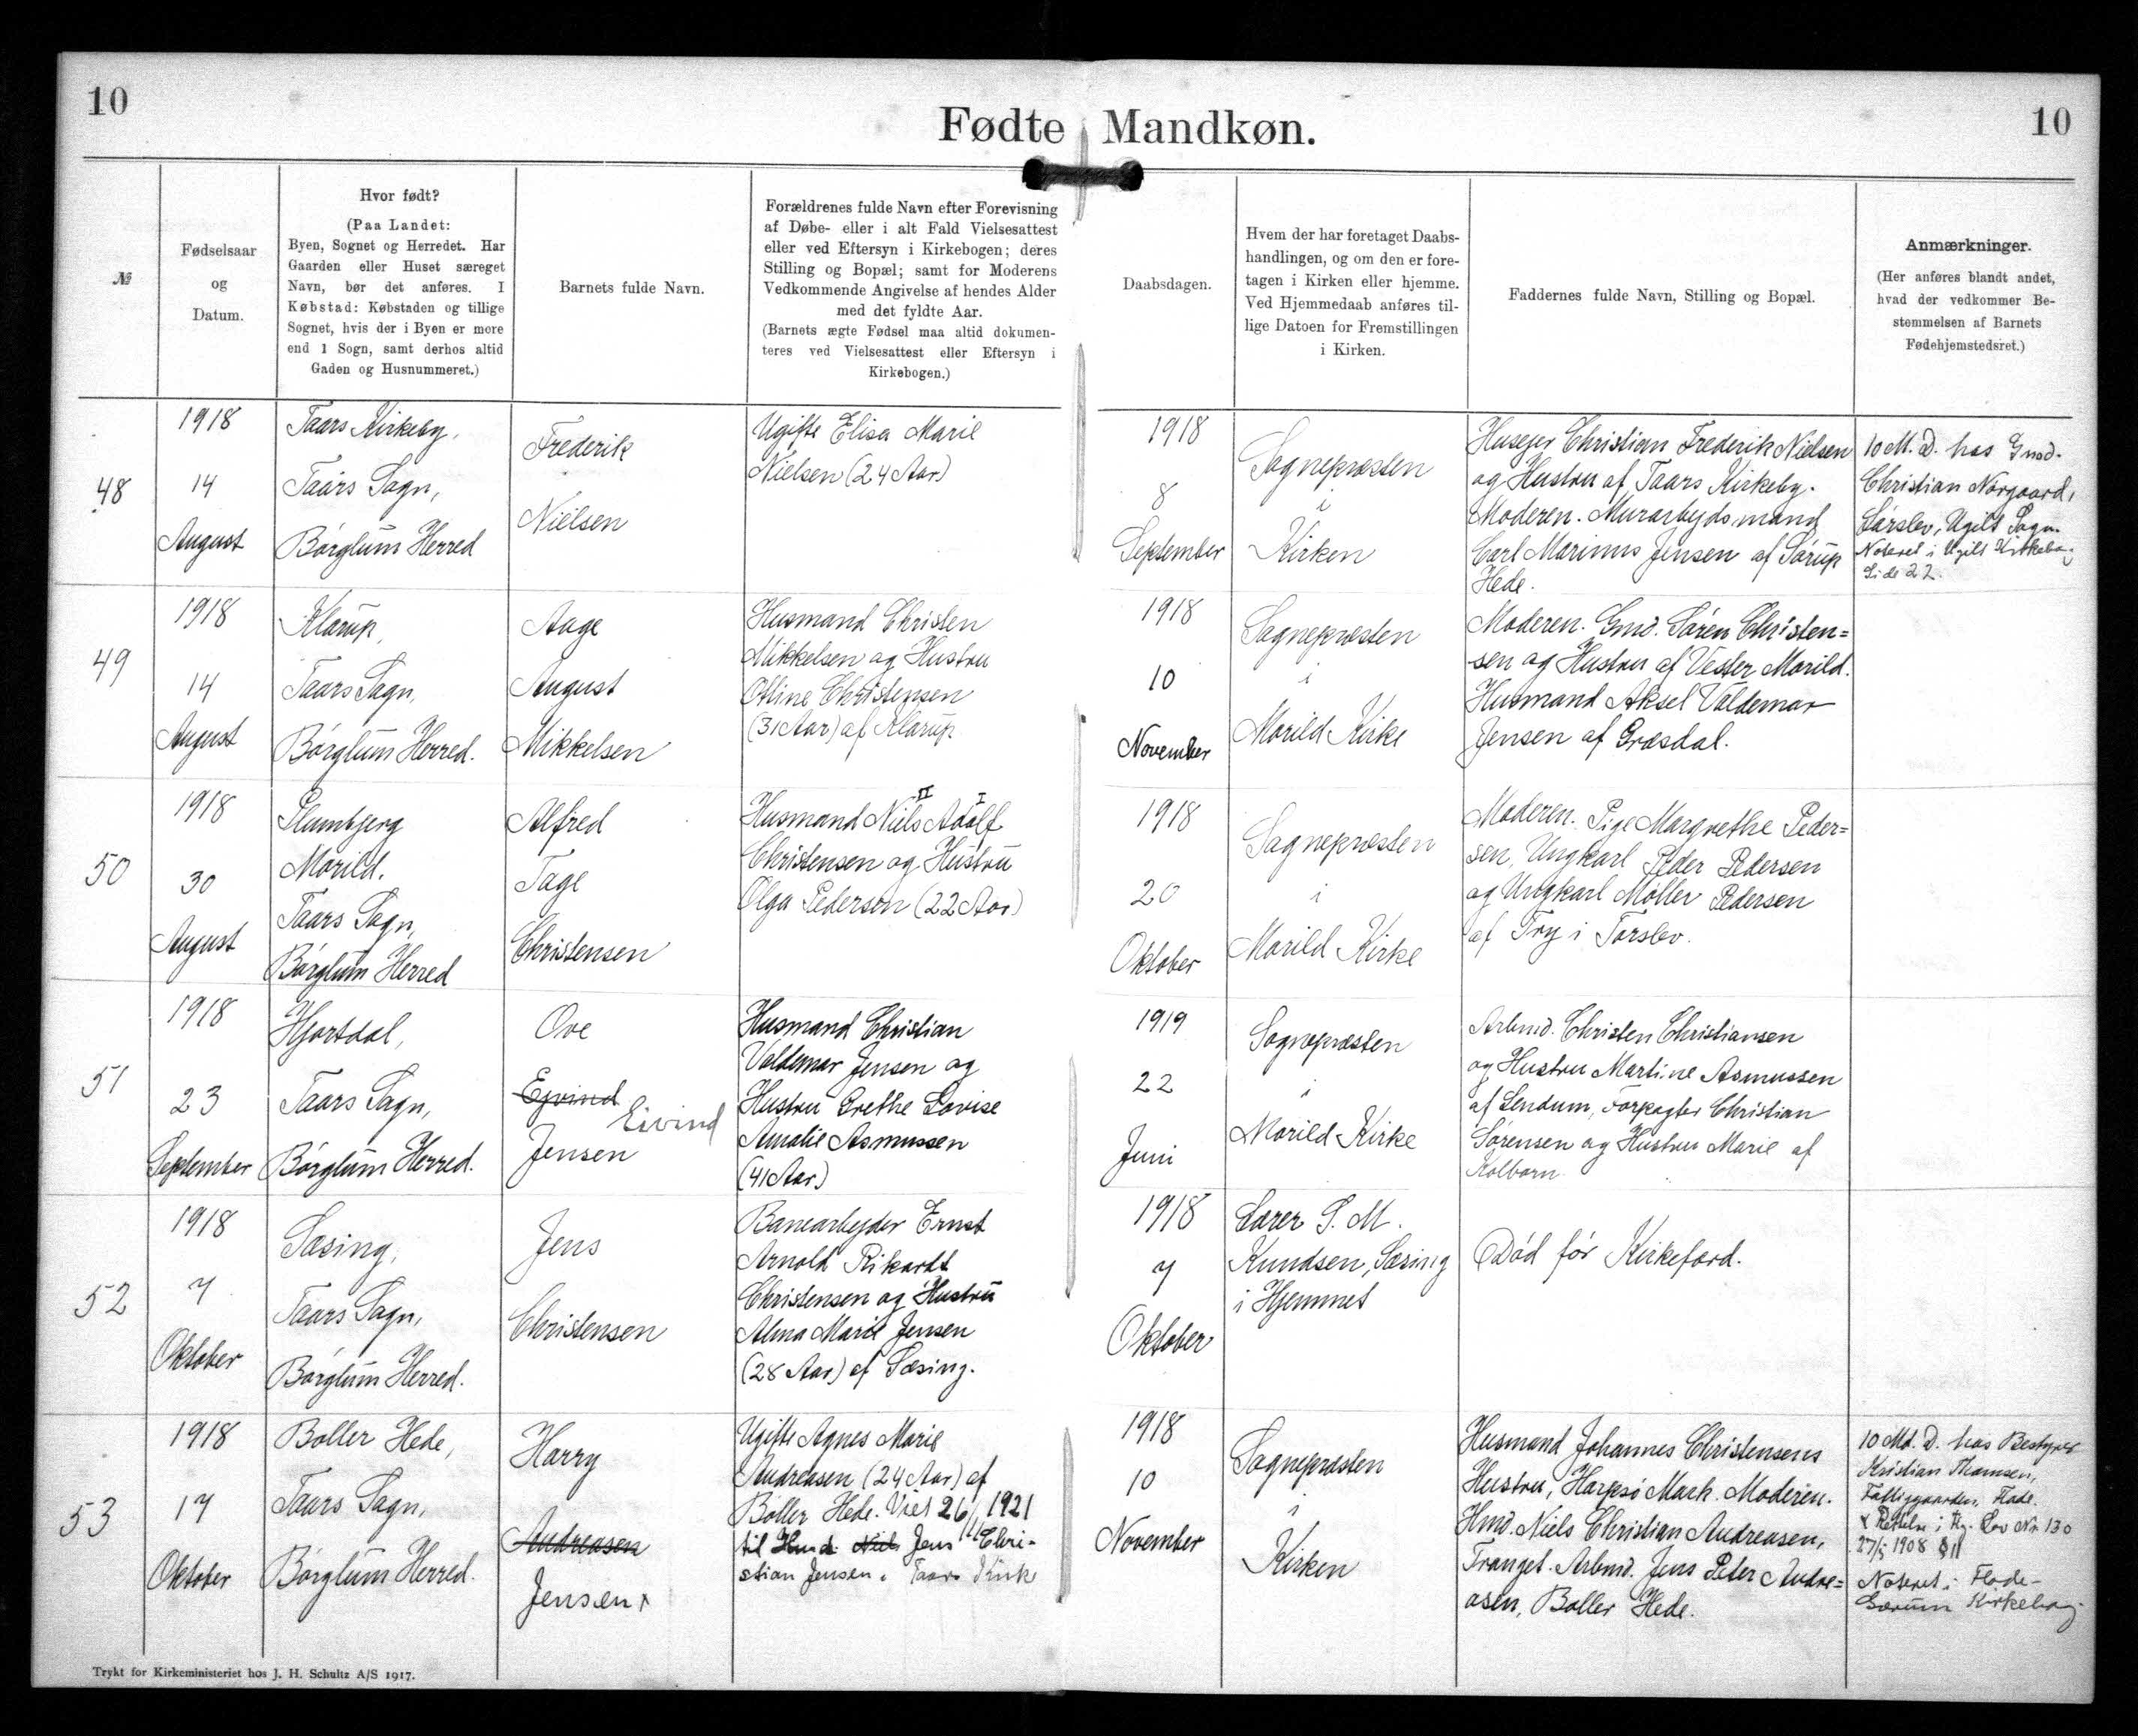 10
10
Fødte Mandkøn.
№
Fødselsaar
og
Datum.
Hvor født?
(Paa Landet:
Byen, Sognet og Herredet. Har
Gaarden eller Huset særeget
Navn, bør det anføres. I
Købstad: Købstaden og tillige
Sognet, hvis der i Byen er more
end 1 Sogn, samt derhos altid
Gaden og Husnummeret.)
Barnets fulde Navn.
Forældrenes fulde Navn efter Forevisning
af Døbe- eller i alt Fald Vielsesattest
eller ved Eftersyn i Kirkebogen; deres
Stilling og Bopæl; samt for Moderens
Vedkommende Angivelse af hendes Alder
med det fyldte Aar.
(Barnets ægte Fødsel maa altid dokumen-
teres ved Vielsesattest eller Eftersyn i
Kirkebogen.)
Daabsdagen.
Hvem der har foretaget Daabs-
handlingen, og om den er fore-
tagen i Kirken eller hjemme.
Ved Hjemmedaab anføres til-
lige Datoen for Fremstillingen
i Kirken.
Faddernes fulde Navn, Stilling og Bopæl.
Anmærkninger.
(Her anføres blandt andet,
hvad der vedkommer Be-
stemmelsen af Barnets
Fødehjemstedsret.)
48
1918
14
August
Taars Kirkeby,
Taars Sogn,
Børglum Herred
Frederik
Nielsen
Ugifte Elisa Marie
Nielsen (24 Aar)
1918
8
September
Sognepræsten
i
Kirken
Husejer Christian Frederik Nielsen
og Hustru af Taars Kirkeby.
Moderen. Murarbejdsmand
Carl Marinus Jensen af Sørup
Hede.
10 M. D. hos Gmd.
Christian Nørgaard,
Sørslev, Ugilt Sogn.
Noteret i Ugilt Kirkebog
Side 22.
49
1918
14
August
Klarup,
Taars Sogn,
Børglum Herred.
Aage
August
Mikkelsen
Husmand Christen
Mikkelsen og Hustru
Otline Christensen
(31 Aar) af Klarup
1918
10
November
Sognepræsten
i
Morild Kirke
Moderen. Gmd. Søren Christen=
sen og Hustru af Vester Morild.
Husmand Aksel Valdemar
Jensen af Græsdal.
50
1918
30
August
Plumbjerg
Morild.
Taars Sogn,
Børglum Herred
Alfred
Tage
Christensen
II I
Husmand Niels Adolf
Christensen og Hustru
Olga Pedersen (22 Aar)
1918
20
Oktober
Sognepræsten
i
Morild Kirke
Moderen. Pige Margrethe Peder=
sen, Ungkarl Peder Pedersen
og Ungkarl Møller Pedersen
af Try i Torslev.
51
1918
23
September
Hjortdal,
Taars Sogn,
Børglum Herred.
Ove
Ejvind
Eivind
Jensen
Husmand Christian
Valdemar Jensen og
Hustru Grethe Lovise
Amalie Asmussen
(41 Aar)
1919
22
Juni
Sognepræsten
i
Morild Kirke
Arbmd. Christen Christiansen
og Hustru Martine Asmussen
af Lendum, Forpagter Christian
Sørensen og Hustru Marie af
Kolborn
52
1918
7
Oktober
Sæsing,
Taars Sogn,
Børglum Herred.
Jens
Christensen
Banearbejder Ernst
Arnold Rikardt
Christensen og Hustru
Alma Marie Jensen
(28 Aar) af Sæsing.
1918
7
Oktober
Lærer S. M.
Knudsen, Sæsing
i Hjemmet
Død før Kirkefærd.
53
1918
17
Oktober
Boller Hede,
Taars Sogn,
Børglum Herred.
Harry
Andreasen
Jensen x
Ugifte Agnes Marie
Andreasen (24 Aar) af
Boller Hede. Viet 26/11 1921
til Husmd. Niels Jens Chri-
stian Jensen i Taars Kirke
1918
10
November
Sognepræsten
i
Kirken
Husmand Johannes Christensens
Hustru, Harpsø Mark. Moderen.
Hmd. Niels Christian Andreasen,
Tranget. Arbmd. Jens Peter Andre=
asen, Boller Hede.
10 Md. D. hos Bestyrer
Kristian Thomsen,
Fattiggaarden, Flade.
x Rettelse i Flg. Lov Nr. 130
27/5 1908 § 11
Noteret i Flade-
Gærum Kirkebog
Trykt for Kirkeministeriet hos J. H. Schultz A/S 1917.